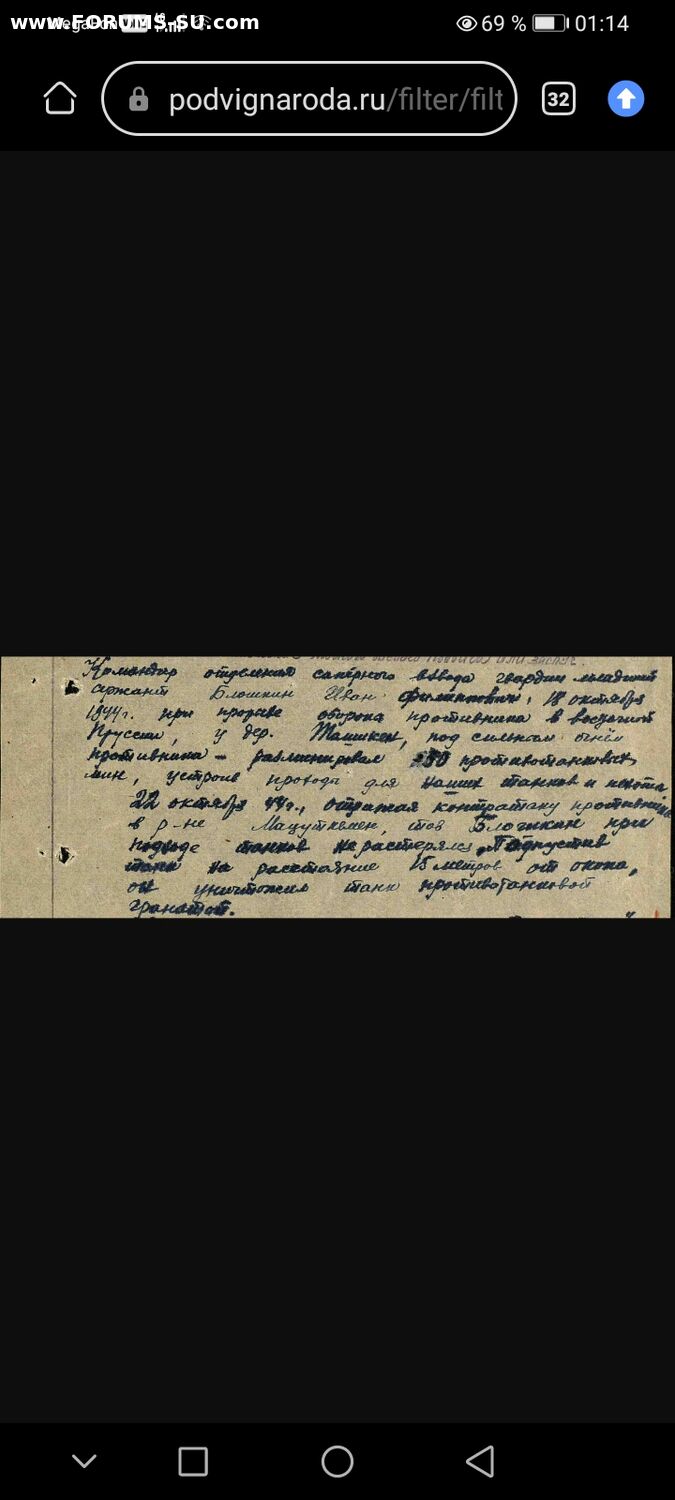 www.FORUMS-SU.com
69 % 01:14
podvignaroda.ru/filter/filt
32
Командир отделения сапёрного взвода гвардии младший
сержант Блошкин Иван Филиппович, 18 октября
1944г. при прорыве обороны противника в восточной
Пруссии, у дер. под сильным огнём
противника – разминировал противотанковых
мин, устроив проходы для наших танков и пехоты.
22 октября 44г., отражая контратаку противника
в р-не тов Блошкин при
подходе танков не растерялся. Подпустив
танк на расстояние 15 метров от окопа,
он уничтожил танк противотанковой
гранатой.